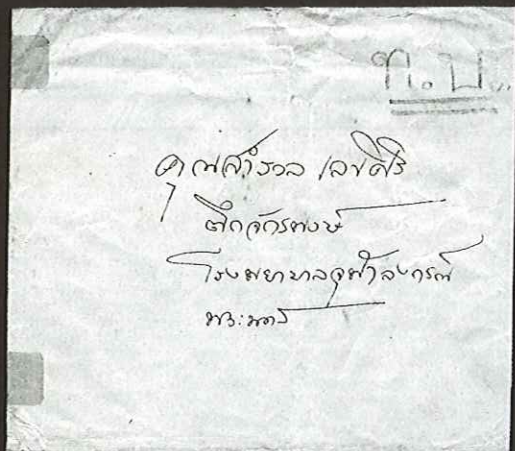 ท.บ.
คุณสำรวล เลขศิริ
ตึกจักรพงษ์
โรงพยาบาลจุฬาลงกรณ์
พระนคร